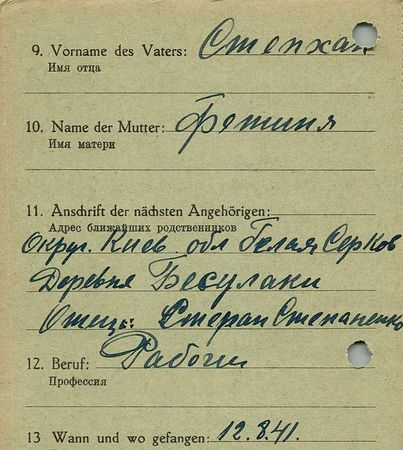 9. Vorname des Vaters: Степхан
Имя отца
10. Name der Mutter: Фетиния
Имя матери
11. Anschrift der nächsten Angehörigen:
Адрес ближайших родственников
Округ. Киев обл Белая Серков
Деревня Бесулаки
Отец: Стефан Степаненко
12. Beruf: Рабочий
Профессия
13 Wann und wo gefangen: 12.8.41.